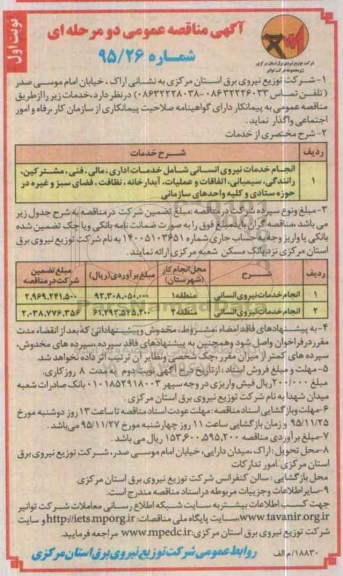 نوبت اول
آگهی مناقصه عمومی دو مرحله ای
شماره ۹۵/۲۶
شرکت توزیع نیروی برق استان مرکزی
۱- شرکت توزیع نیروی برق استان مرکزی به نشانی اراک ، خیابان امام موسی صدر
(تلفن تماس ۳۳-۰۸۶۳۲۲۲۶۰ و ۰۸۶۳۲۲۲۸۰۳۸) در نظر دارد، خدمات زیر را از طریق
مناقصه عمومی به پیمانکار دارای گواهینامه صلاحیت پیمانکاری از سازمان کار، رفاه و امور
اجتماعی واگذار نماید.
۲- شرح مختصری از خدمات
ردیف شرح خدمات
۱ انجام خدمات نیروی انسانی شامل خدمات اداری، مالی، فنی، مشترکین،
رانندگی، سیمبانی، اتفاقات و عملیات، آبدارخانه، نظافت، فضای سبز و غیره در
حوزه ستادی و کلیه واحدهای سازمانی
۳- مبلغ و نوع سپرده شرکت در مناقصه: مبلغ تضمین شرکت در مناقصه به شرح جدول زیر
می باشد. مناقصه گران باید مبلغ فوق را به صورت ضمانت نامه بانکی و یا چک تضمین شده
بانکی یا واریز وجه به حساب جاری شماره ۱۴۰۰۵۱۰۳۶۵۱ به نام شرکت توزیع نیروی برق
استان مرکزی نزد بانک مسکن شعبه مرکزی ارائه نمایند.
ردیف شرح محل انجام کار (شهرستان) مبلغ برآوردی (ریال) مبلغ تضمین شرکت در مناقصه
۱ انجام خدمات نیروی انسانی منطقه ۱ ۹۲,۳۰۸,۰۵۰,۰۰۰ ۲,۹۶۹,۲۴۱,۵۰۰
۲ انجام خدمات نیروی انسانی منطقه ۲ ۶۱,۲۹۲,۵۴۵,۲۰۰ ۲,۰۳۸,۷۷۶,۳۵۶
۴- به پیشنهادهای فاقد امضاء، مشروط، مخدوش و پیشنهاداتی که بعد از انقضاء مدت
مقرر در فراخوان واصل شود و همچنین به پیشنهادهای فاقد سپرده، سپرده های مخدوش،
سپرده های کمتر از میزان مقرر، چک شخصی و نظایر آن ترتیب اثر داده نخواهد شد.
۵- مهلت و مبلغ فروش اسناد : از تاریخ درج آگهی نوبت دوم به مدت ۸ روز کاری.
مبلغ ۲۰۰/۰۰۰ ریال فیش واریزی در وجه سپهر ۰۱۰۱۸۵۲۹۱۸۰۰۳ بانک صادرات شعبه
میدان شهدا به نام شرکت توزیع نیروی برق استان مرکزی.
۶- مهلت و بازگشایی اسناد مناقصه: مهلت عودت اسناد مناقصه تا ساعت ۱۳ روز دوشنبه مورخ
۹۵/۱۱/۲۵ و زمان بازگشایی ساعت ۱۱ روز چهارشنبه مورخ ۹۵/۱۱/۲۷ می باشد.
۷- مبلغ برآوردی مناقصه ۱۵۳,۶۰۰,۵۹۵,۲۰۰ ریال می باشد.
۸- محل تحویل: اراک ،میدان دارایی، خیابان امام موسی صدر، شرکت توزیع نیروی برق
استان مرکزی .امور تدارکات
محل بازگشایی : سالن کنفرانس شرکت توزیع نیروی برق استان مرکزی.
۹- سایر اطلاعات و جزییات مربوطه در اسناد مناقصه مندرج است.
جهت کسب اطلاعات بیشتر به سایت شبکه اطلاع رسانی معاملات شرکت توانیر
www.tavanir.org.ir سایت پایگاه ملی مناقصات: http://iets.mporg.ir و سایت
شرکت توزیع نیروی برق استان مرکزی www.mpedc.ir مراجعه فرمایید.
روابط عمومی شرکت توزیع نیروی برق استان مرکزی
۱۸۸۳۰/ م الف